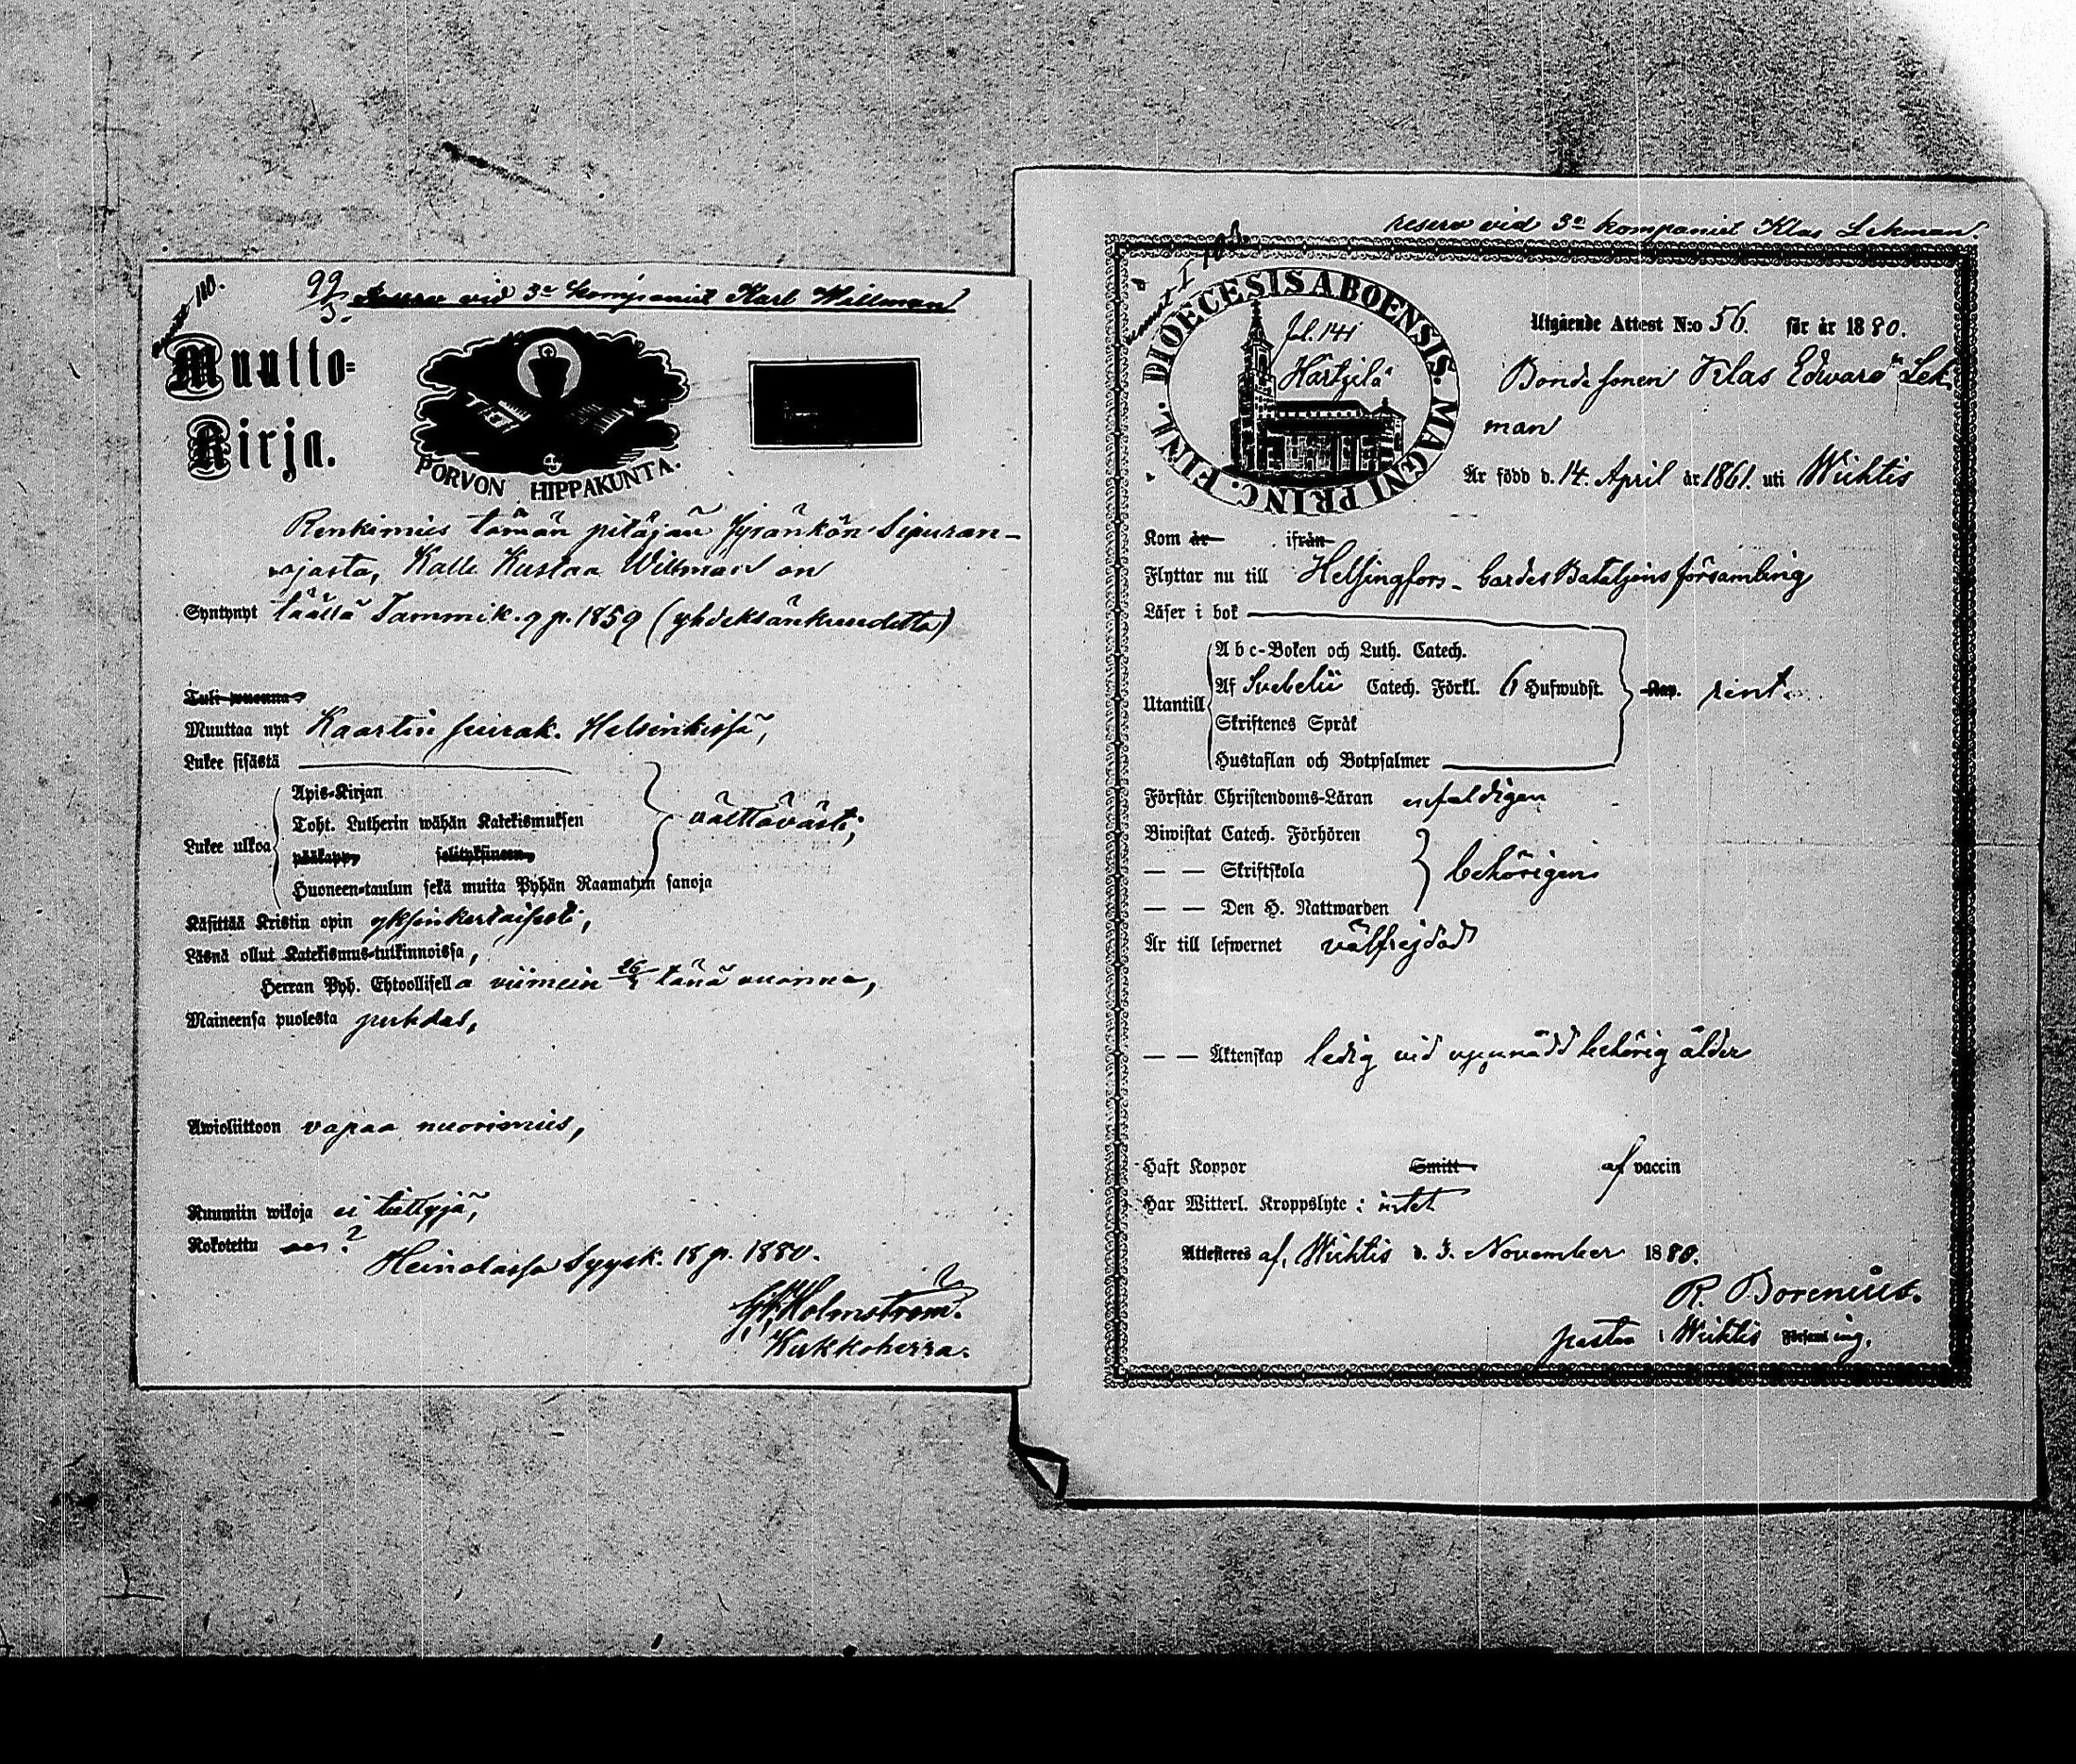 99
5.
Reserv vid 3e kompaniet Karl Willman
Muutto-
Kirja.
PORVON HIPPAKUNTA.
Renkimies tämän pitäjän Jyränkön Sipuran-
ojasta, Kalle Kustaa Willman on
Syntynyt täällä Tammik. 9 p. 1859 (yhdeksänkuudetta)
Tuli wuonna
Muuttaa nyt Kaartin seurak. Helsinkissä,
Lukee sisästä
Apis-Kirjan
Toht. Lutherin wähän Katekismuksen
Lukee ulkoa
välttävästi,
pääkapp. selityksineen,
Huoneen-taulun sekä muita Pyhän Raamatun sanoja
Käsittää Kristin opin yksinkertaisesti,
Läsnä ollut Katekismus-tutkinnoissa,
Herran Pyh. Ehtoollisella viimein tänä vuonna,
Maineensa puolesta puhdas,
Awioliittoon vapaa nuorimies,
Ruumiin wikoja ei tiettyjä,
Rokotettu on?
Heinolassa Syysk. 18 p. 1880.
Holmström.
Kirkkoherra.
reserv vid 3e kompaniet Klas Lekman.
DIOECESIS ABOENSIS. MAGNI PRINC. FINL.
fol. 141
Härtsilä
Utgående Attest N:o 56. för år 1880.
Bondesonen Klas Edward Lek
man
Är född d. 14. April år 1861. uti Wichtis
Kom år ifrån
Flyttar nu till Helsingfors Gardes Bataljons församling
Läser i bok
Abc-Boken och Luth. Catech.
Af Svebelii Catech. Förkl. 6 Hufwudst.
Utantill
Kap. rent.
Skriftenes Språk
Hustaflan och Botpsalmer
Förstår Christendoms-Läran enfaldigen
Biwistat Catech. Förhören
— — Skriftskola
behörigen
— — Den H. Nattwarden
Är till lefwernet välfrejdad
— — Äktenskap ledig vid uppnådd behörig ålder
Haft Koppor Smitt af vaccin
Har Witterl. Kroppslyte: intet
Attesteres af, Wichtis d. 3. November 1880.
R. Borenius.
pastor i Wichtis Församling.